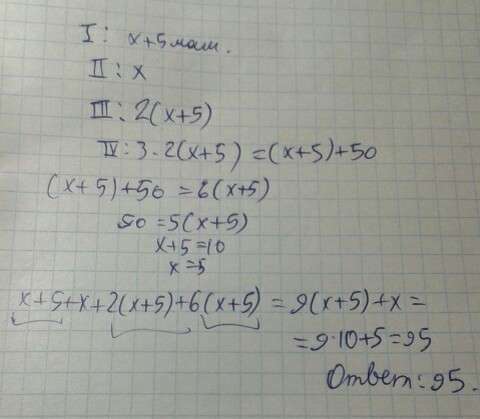 I: x+5 маш.
II: x
III: 2(x+5)
IV: 3·2(x+5) = (x+5)+50
(x+5)+50 = 6(x+5)
50 = 5(x+5)
x+5=10
x=5
x+5+x+2(x+5)+6(x+5) = 9(x+5)+x =
= 9·10+5=95
Ответ: 95.